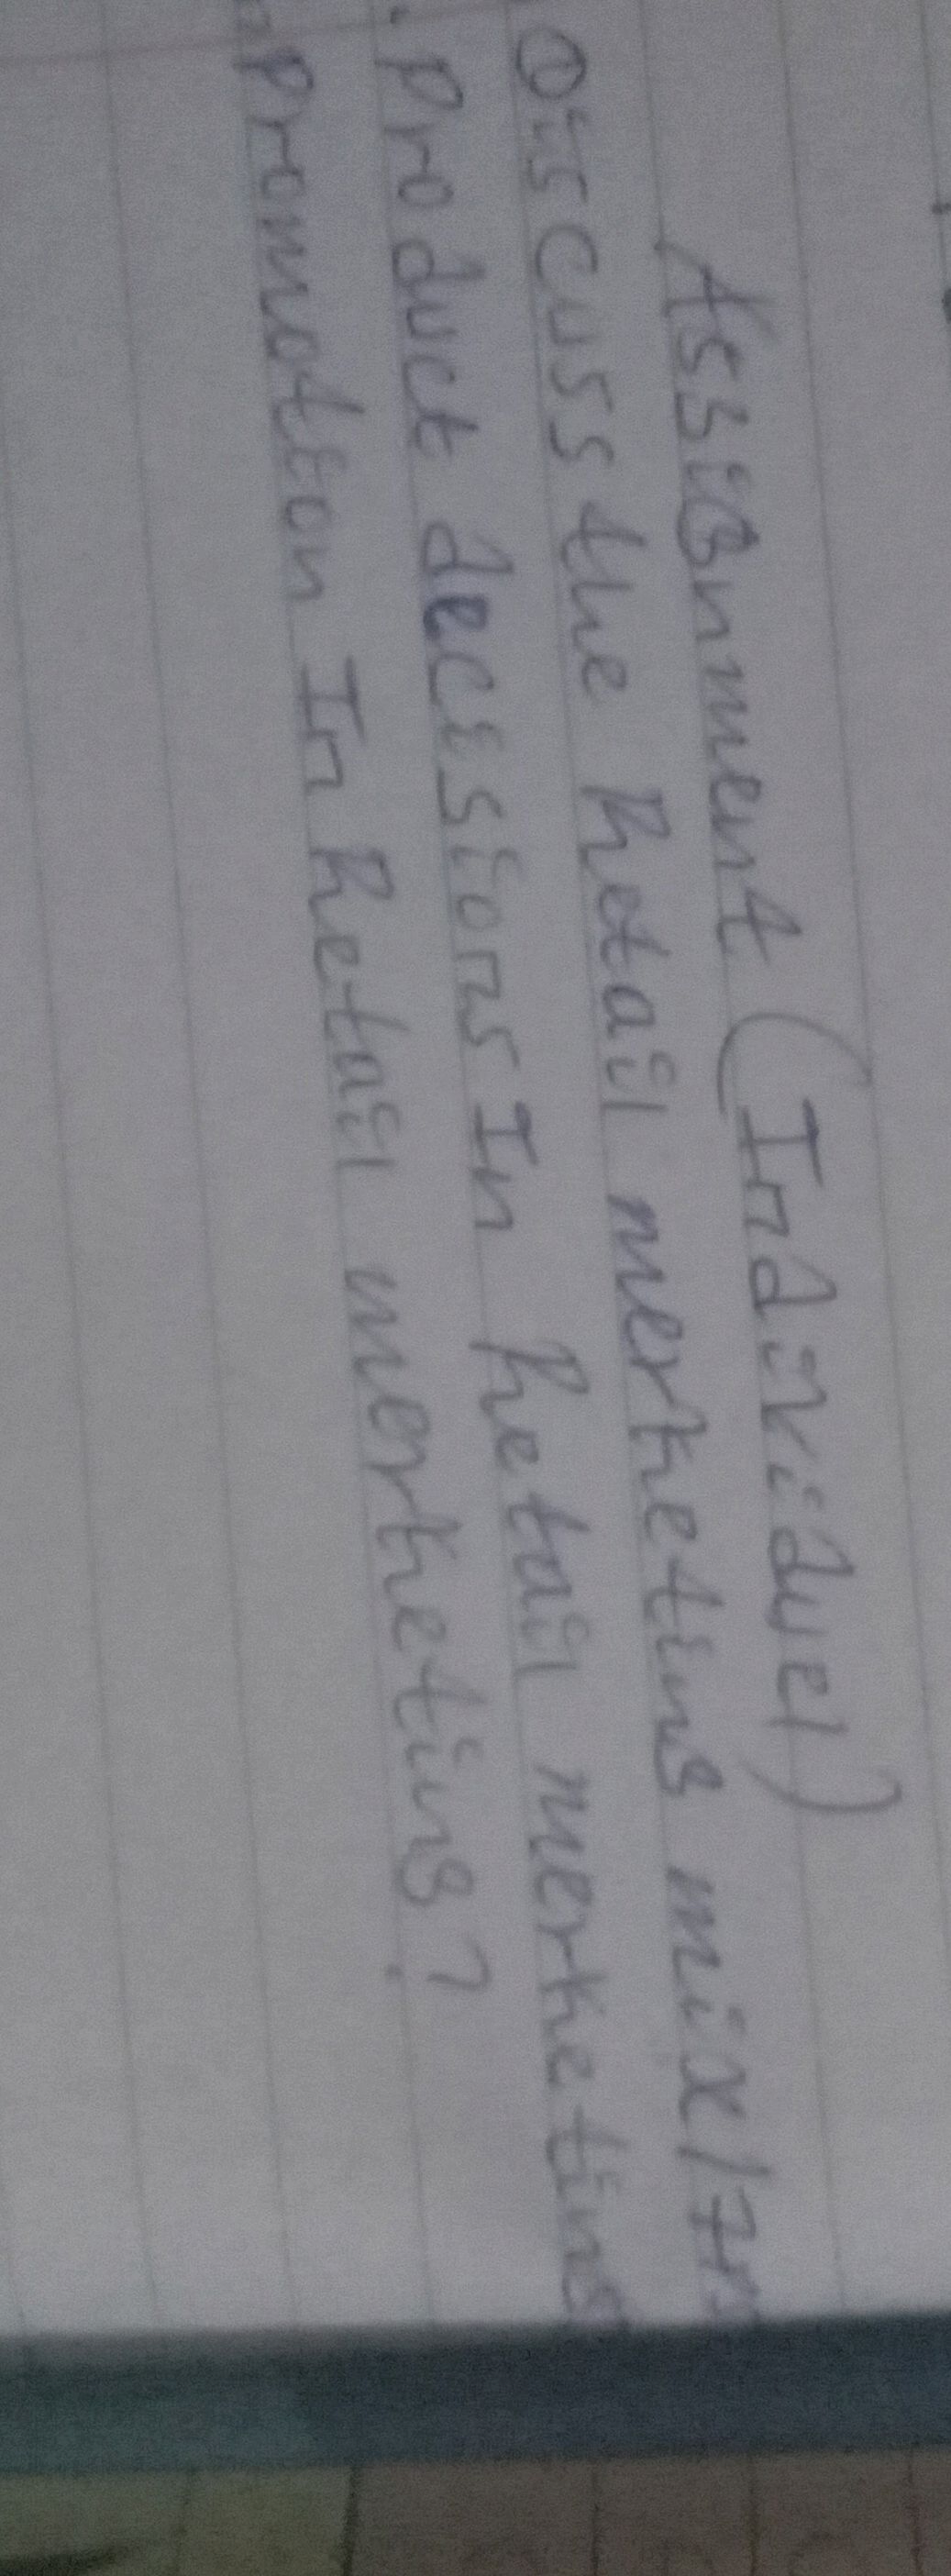 Assignment (Individuel)
Discuss the Retail merketing mix/7
. Product decisions In Retail merketing
Promotion In Retail merketing?